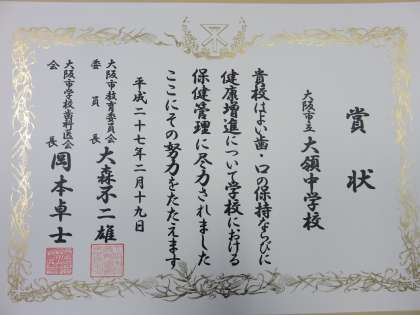 賞状
大阪市立 大領中学校
貴校はよい歯・口の保持ならびに
健康増進について学校における
保健管理に尽力されました
ここにその努力をたたえます
平成二十七年二月十九日
大阪市教育委員会
委員長 大森不二雄
大阪市学校歯科医会
会長 岡本卓士